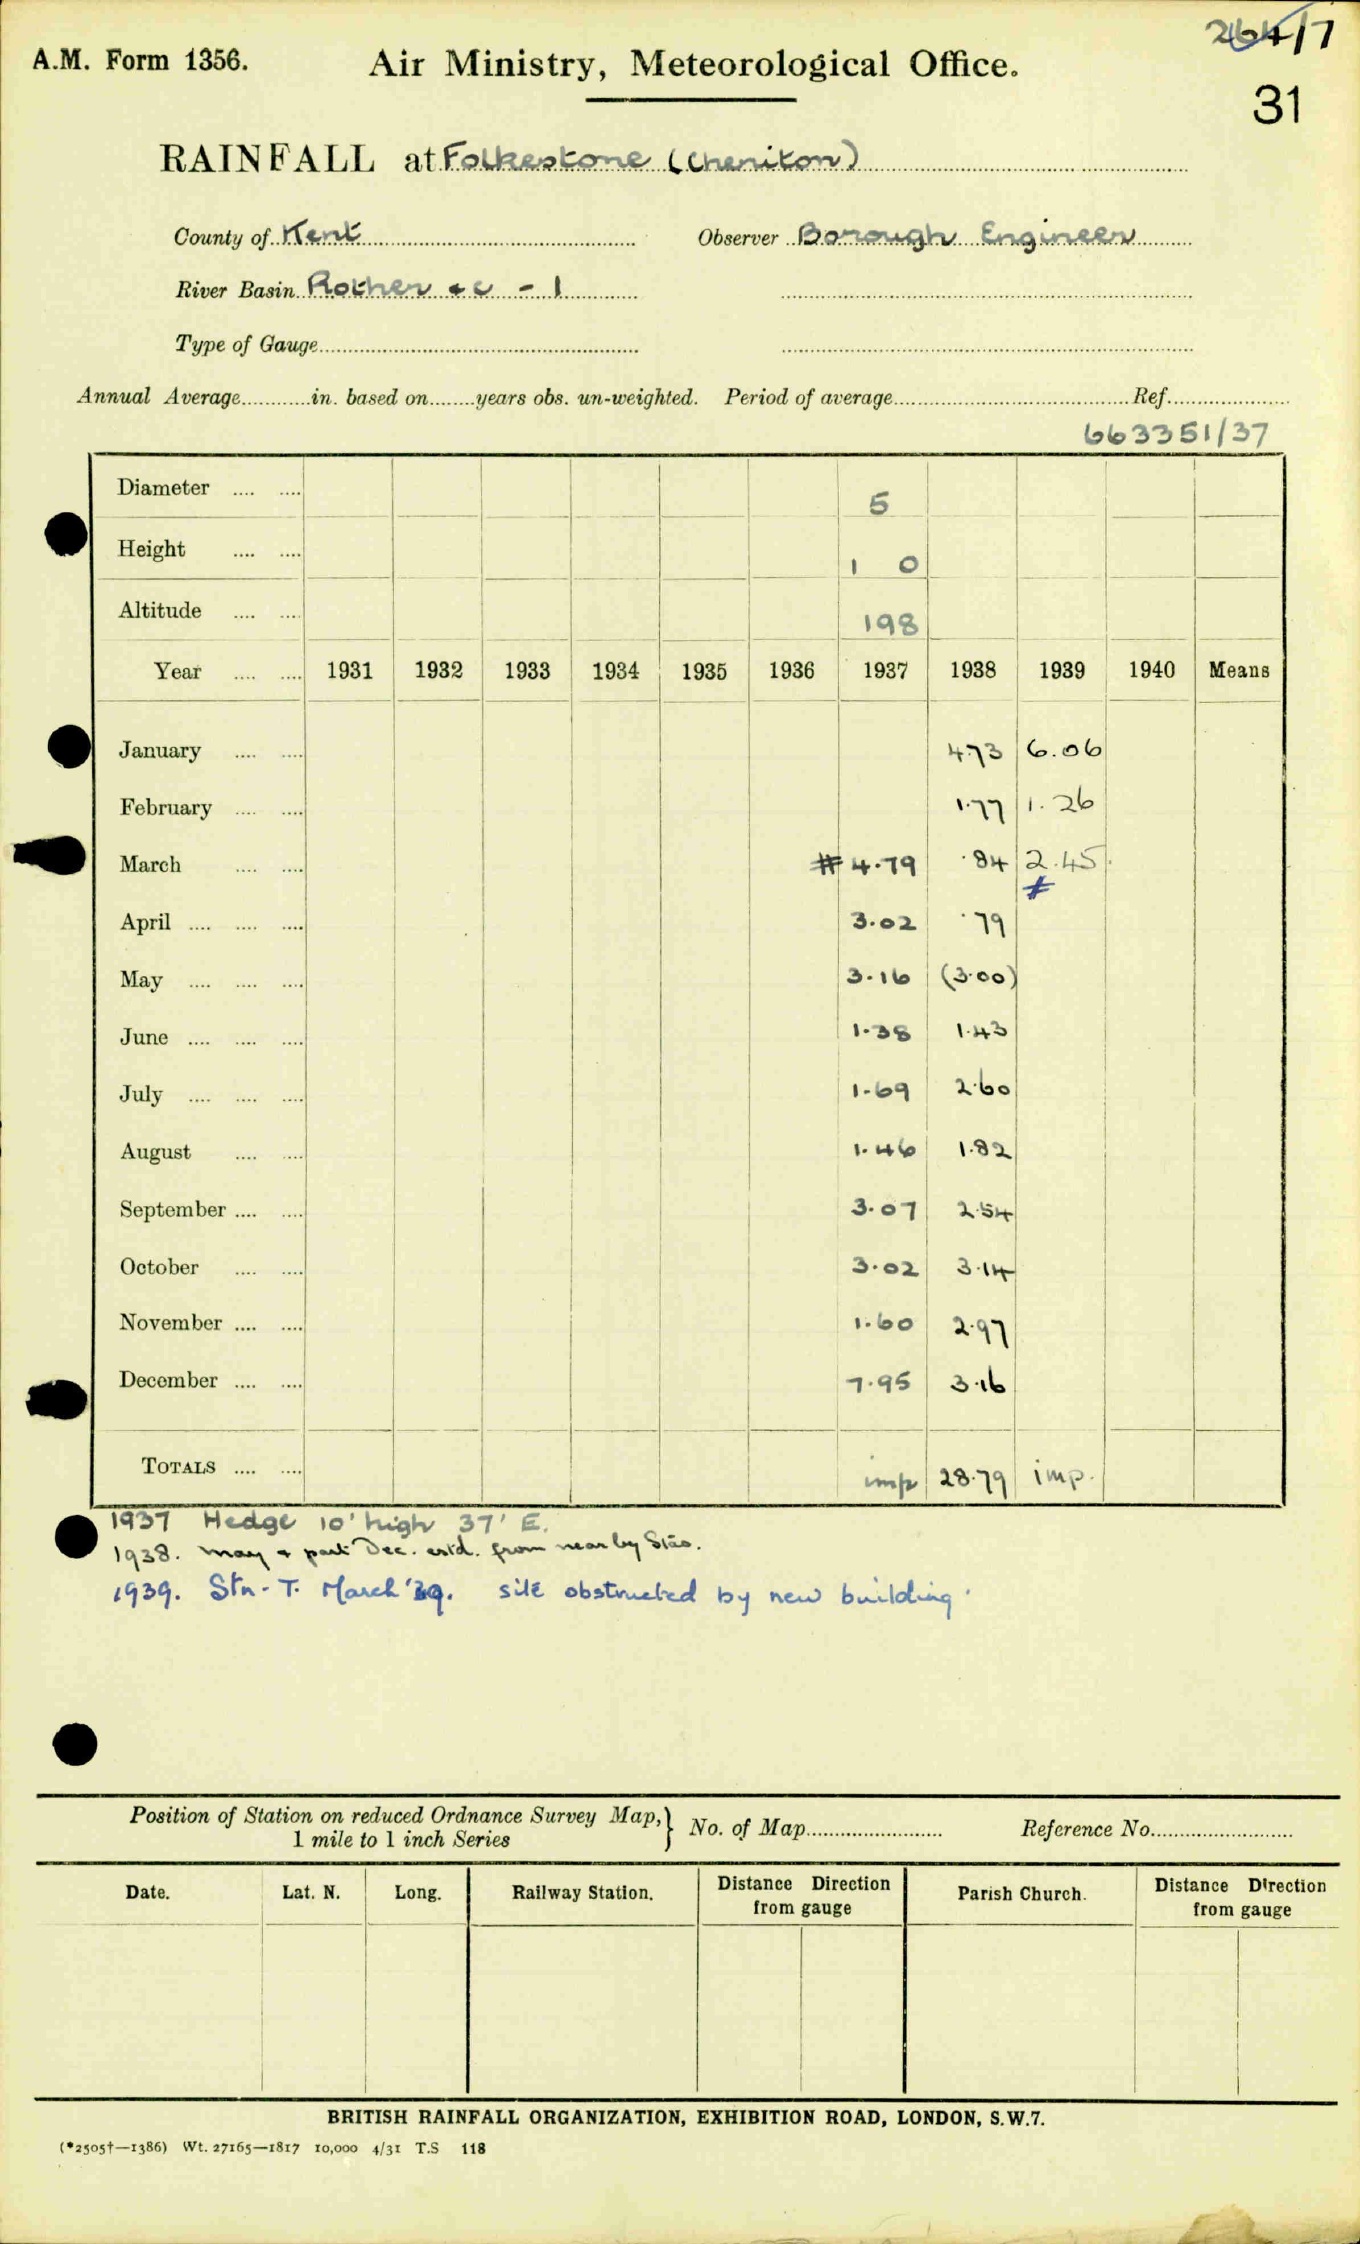 264/7
A.M. Form 1356. Air Ministry, Meteorological Office.
31
RAINFALL at Folkestone (Cheriton)
County of Kent Observer Borough Engineer
River Basin Rother &c - 1
Type of Gauge
Annual Average in. based on years obs. un-weighted. Period of average Ref.
663351/37
Diameter .... .... 5
Height .... .... 1 0
Altitude .... .... 198
Year .... .... 1931 1932 1933 1934 1935 1936 1937 1938 1939 1940 Means
January .... .... 4.73 6.06
February .... .... 1.77 1.26
March .... .... # 4.79 .84 2.45
#
April .... .... .... 3.02 .79
May .... .... .... 3.16 (3.00)
June .... .... .... 1.38 1.43
July .... .... .... 1.69 2.60
August .... .... 1.46 1.82
September .... .... 3.07 2.54
October .... .... 3.02 3.14
November .... .... 1.60 2.97
December .... .... 7.95 3.16
TOTALS .... .... imp 28.79 imp.
1937 Hedge 10' high 37' E.
1938. May & part Dec. estd. from near by Stas.
1939. Stn. T. March '39. site obstructed by new building.
Position of Station on reduced Ordnance Survey Map,} No. of Map Reference No.
1 mile to 1 inch Series
Date. Lat. N. Long. Railway Station. Distance Direction from gauge Parish Church. Distance Direction from gauge
BRITISH RAINFALL ORGANIZATION, EXHIBITION ROAD, LONDON, S.W.7.
(*2505†—1386) Wt. 27165—1817 10,000 4/31 T.S 118